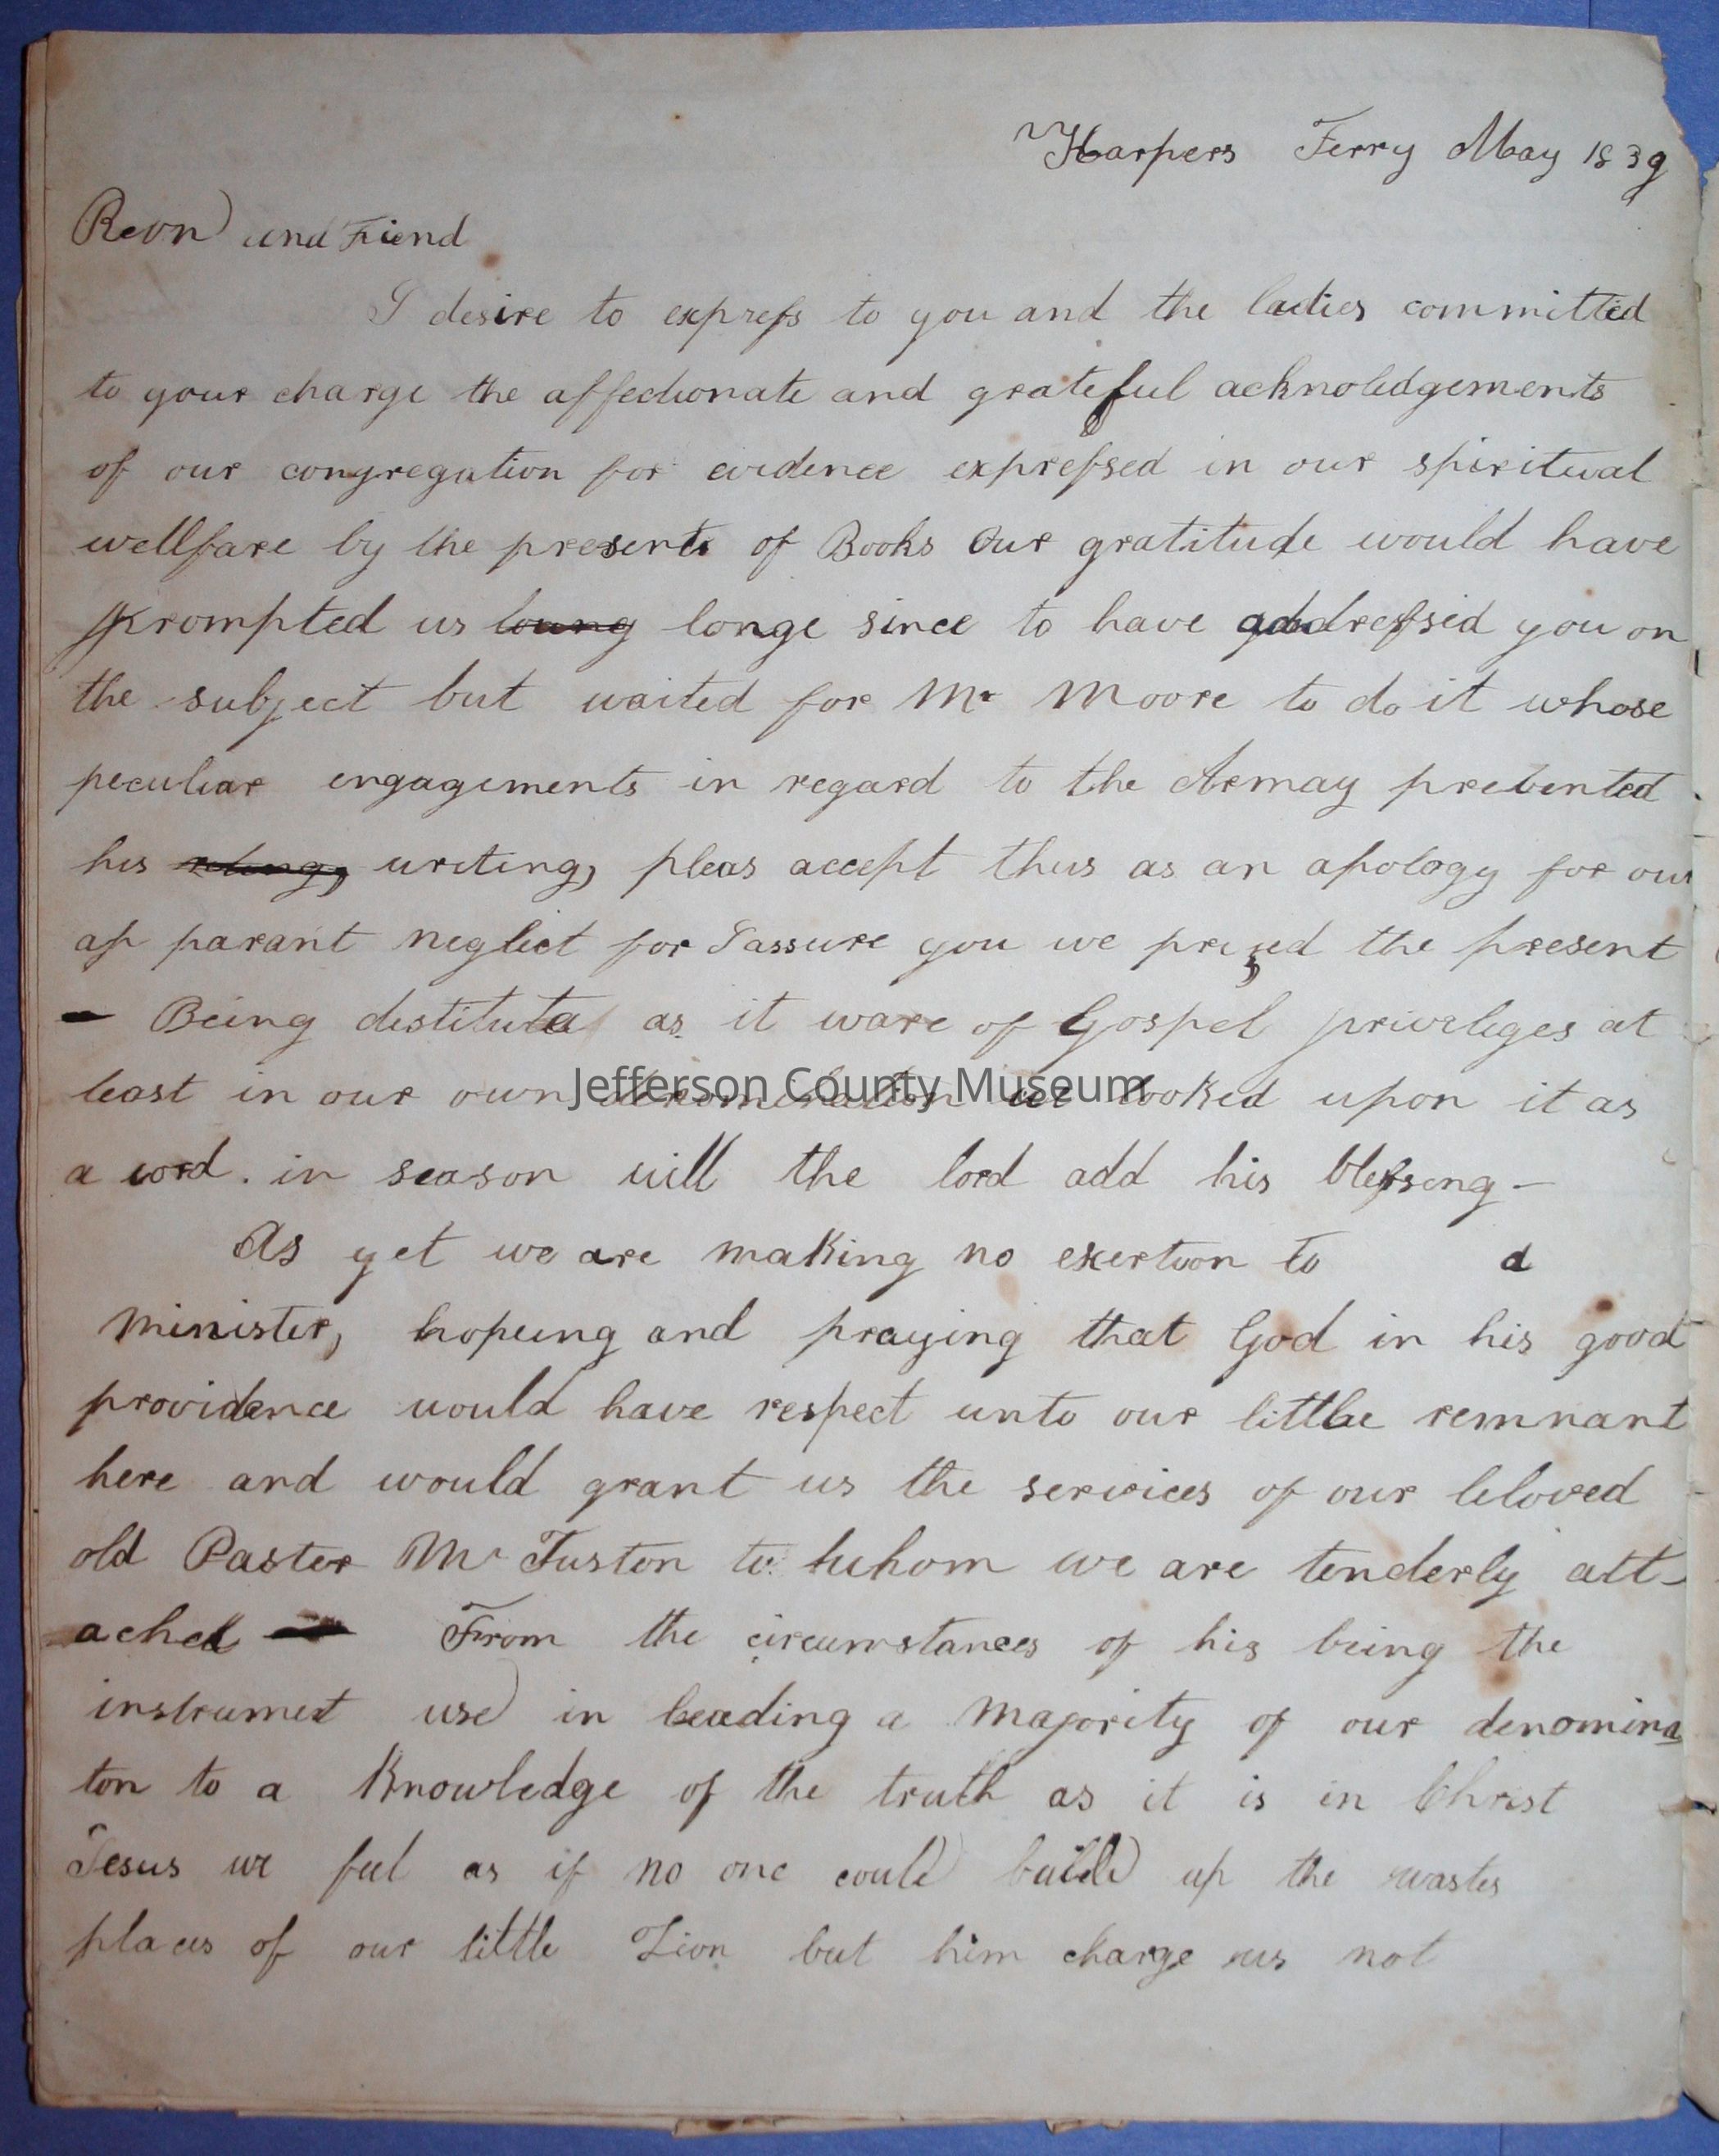 Harpers Ferry May 1839
Revn and Friend
I desire to express to you and the ladies committed
to your charge the affectionate and grateful acknoledgements
of our congregation for evidence expressed in our spiritual
wellfare by the presents of Books Our gratitude would have
prompted us loung longe since to have addressed you on
the subject but waited for Mr Moore to do it whose
peculiar engagements in regard to the Armay prevented
his writing, pleas accept thus as an apology for our
ap parant neglect for I assure you we prized the present
- Being destitute as it ware of Gospel privileges at
least in our own denomination we looked upon it as
Jefferson County Museum
a word. in season will the lord add his blessing -
As yet we are making no exertion to a
minister, hopeing and praying that God in his good
providence would have respect unto our little remnant
here and would grant us the services of our beloved
old Paster Mr Fuston to whom we are tenderly att-
ached - From the circumstances of his being the
instrument use in leading a majority of our denomina
ton to a Knowledge of the truth as it is in Christ
Jesus we feel as if no one could build up the wastes
places of our little Zion but him charge us not